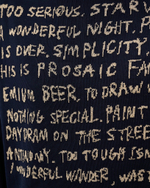 TOO SERIOUS. STARV
A WONDERFUL NIGHT. P
IS OVER. SIMPLICITY,
THIS IS PROSAIC FA
EMIUM BEER. TO DRAW
NOTHING SPECIAL. PAINT
DAYDRAM ON THE STREE
ANTHONY. TOO TOUGH ISN
WONDERFUL WINDER, WAS